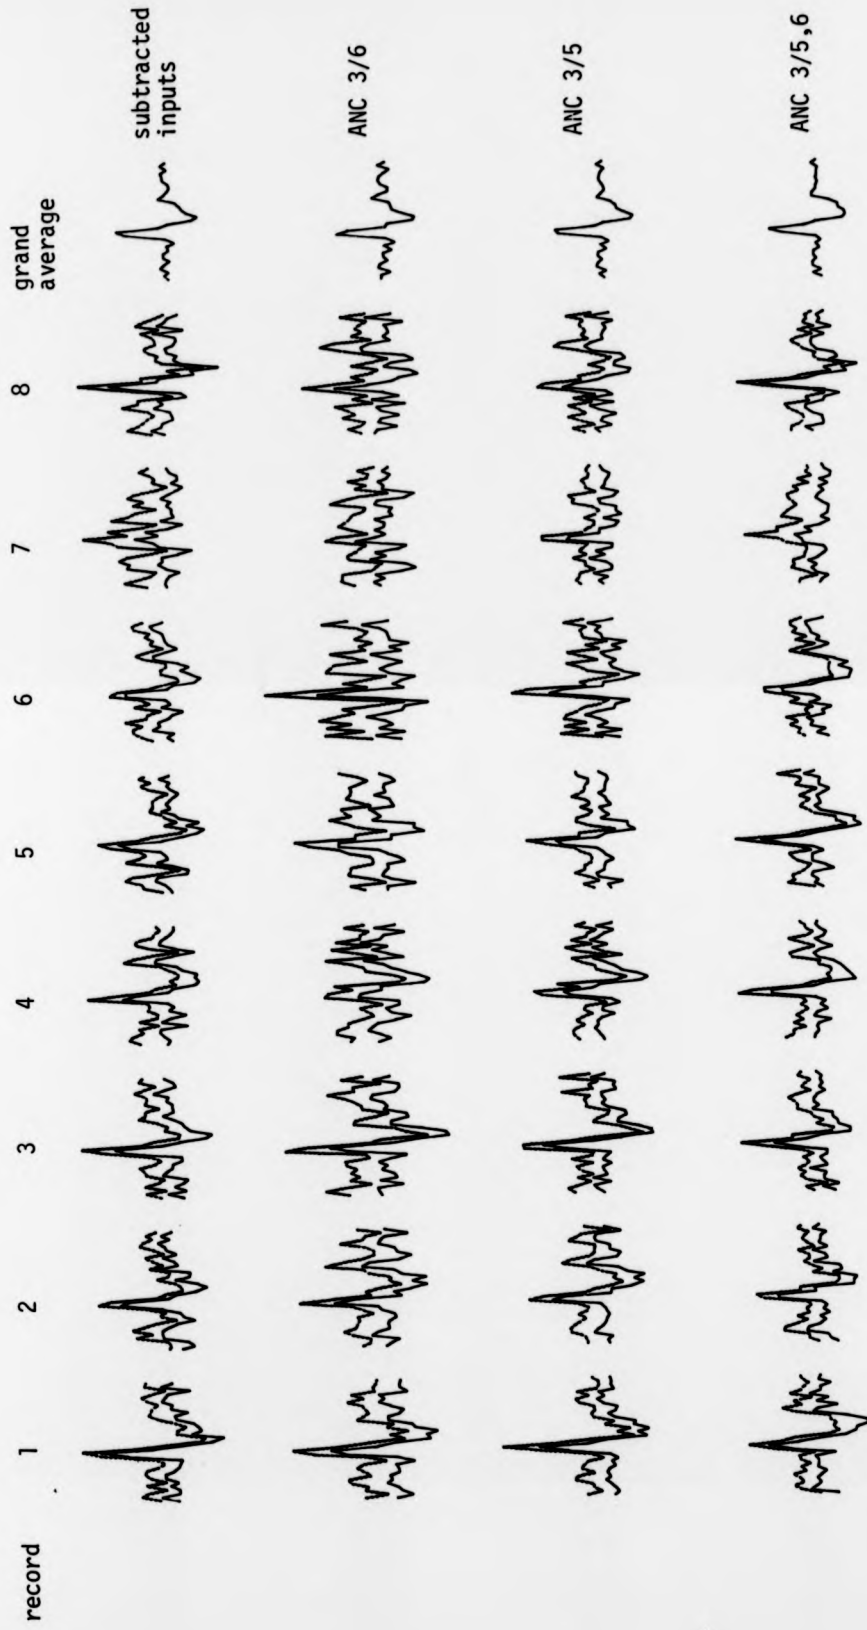 record 1 2 3 4 5 6 7 8 grand
average
subtracted
inputs
ANC 3/6
ANC 3/5
ANC 3/5,6